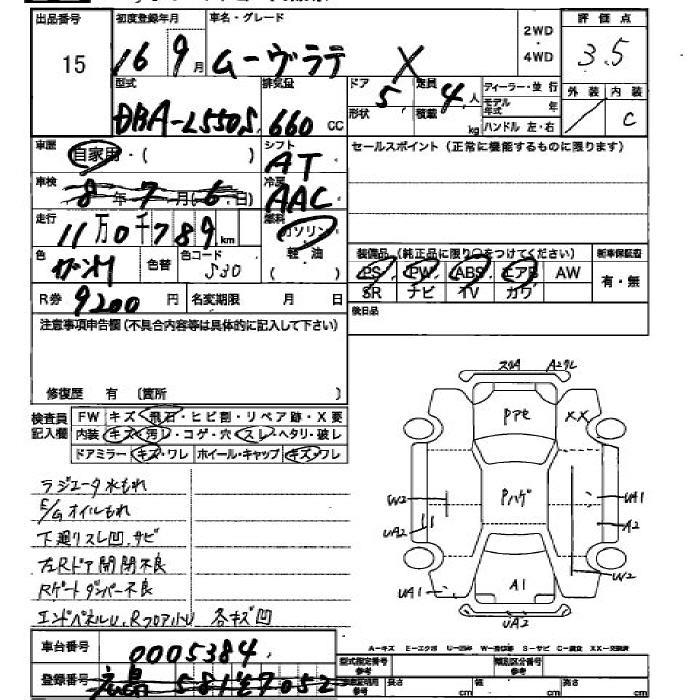 出品番号 初度登録年月 車名・グレード 2WD・4WD 評価点
15 16 9月 ムーヴラテ X 3.5
型式 排気量 ドア形状 定員積載 ディーラー・並行 外装 内装
DBA-L550S 660cc 5 4人 kg モデル年式 年 ハンドル 左・右 C
車歴 自家用・( ) シフト AT セールスポイント(正常に機能するものに限ります)
車検 8年7月(6日) 冷房 AAC
走行 11万0千789km 燃料 ガソリン 軽油
色 色替 色コード S30
装備品(純正品に限り○をつけてください) 新車保証書
PS PW ABS エアB AW 有・無
SR ナビ TV カワ
R券 9200円 名変期限 月 日 後日品
注意事項申告欄(不具合内容等は具体的に記入して下さい)
修復歴 有 〔箇所 〕
検査員記入欄 FW キズ・飛石・ヒビ割・リペア跡・X要
内装 キズ・汚れ・コゲ・穴・スレ・ヘタリ・破レ
ドアミラー キズ・ワレ ホイール・キャップ キズ・ワレ
スリA A2ワレ
Pアセ XX
W2 Pハゲ UA1
UA2 A2
W2
UA1 A1
UA2
ラジエータ水もれ
E/Gオイルもれ
下廻りスレ凹、サビ
左Rドア開閉不良
Rゲートダンパー不良
エンドパネルU、RフロアハリU 各キズ凹
車台番号 0005384
A-キズ E-エクボ U-凹み W-補修跡 S-サビ C-腐食 XX-交換済
登録番号 広島 581 7052
型式指定番号 参考 類別区分番号 参考
参考 長さ cm 幅 cm 高さ cm